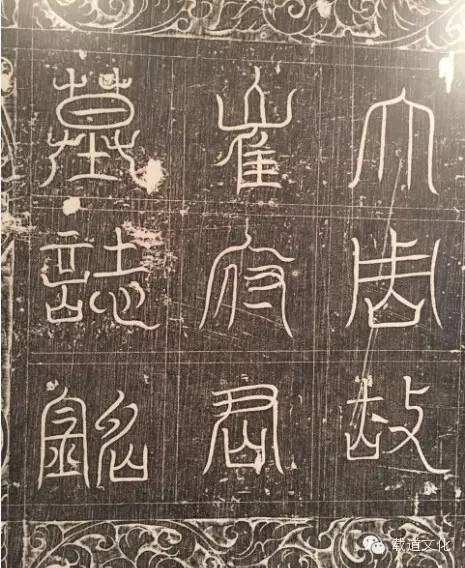 大周故
崔府君
墓誌銘
载道文化